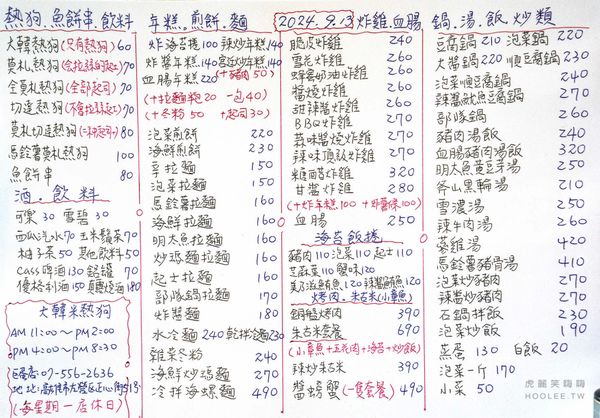 熱狗.魚餅串.飲料
大韓熱狗(只有熱狗)60
莫札熱狗(含拉絲起士)70
全莫札熱狗(全部起司)70
切達熱狗(不會拉絲起士)70
莫札切達熱狗 80
馬鈴薯莫札熱狗 100
魚餅串 80
酒.飲料
可樂30 雪碧30
西瓜汽水70 玉米鬚茶70
柚子茶50 其他飲料50
Cass啤酒130
優格利油150 真露燒酒180
大韓米熱狗
AM 11:00~PM 2:00
PM 4:00~PM 8:30
07-556-2636
(每星期一店休日)
年糕.煎餅.麵
炸海苔捲100 辣炒年糕140
炸醬年糕140 宮廷炒年糕140
血腸年糕220 (+豬肉50)
(+拉麵粄20 一包40)
(+冬粉50 +起司30)
泡菜煎餅 220
海鮮煎餅 230
辛拉麵 150
泡菜拉麵 150
馬鈴薯拉麵 160
海鮮拉麵 160
明太魚拉麵 160
炒瑪麵拉麵 160
起士拉麵 160
部隊鍋拉麵 170
炸醬麵 180
水冷麵240 乾拌冷麵230
雜菜冬粉 240
海鮮炒瑪麵 270
冷拌海螺麵 490
2024.9.13 炸雞.血腸
脆皮炸雞 240
雪花炸雞 260
蜂蜜奶油炸雞 260
醬燒炸雞 260
甜辣醬炸雞 260
BBQ炸雞 270
蒜味醬燒炸雞 270
辣味頂級炸雞 280
糖醋炸雞 320
甘醬炸雞 280
(+炸年糕100 +炸薯條100)
血腸 250
海苔飯捲
豬肉110 泡菜110 起士110
芝麻葉110 蟹味120
美乃滋鮪魚120 辣醬鮪魚120
烤肉.朱古米(小章魚)
銅盤烤肉 390
朱古米套餐 690
(小章魚+五花肉+海苔+炒飯)
辣炒朱古米 390
醬螃蟹(一隻套餐)490
鍋.湯.飯炒類
豆腐鍋210 泡菜鍋220
大醬鍋220 順豆腐鍋230
泡菜順豆腐鍋 240
辣醬魷魚豆腐鍋 270
部隊鍋 260
豬肉湯飯 240
血腸豬肉湯飯 320
明太魚黃豆芽湯 250
釜山黑輪湯 210
雪濃湯 250
辣牛肉湯 260
蔘雞湯 420
馬鈴薯豬骨湯 410
泡菜炒豬肉 270
辣醬炒豬肉 270
石鍋拌飯 230
泡菜炒飯 190
蒸蛋130 白飯20
泡菜一斤170
小菜50
虎麗笑嗨嗨
HOOLEE.TW